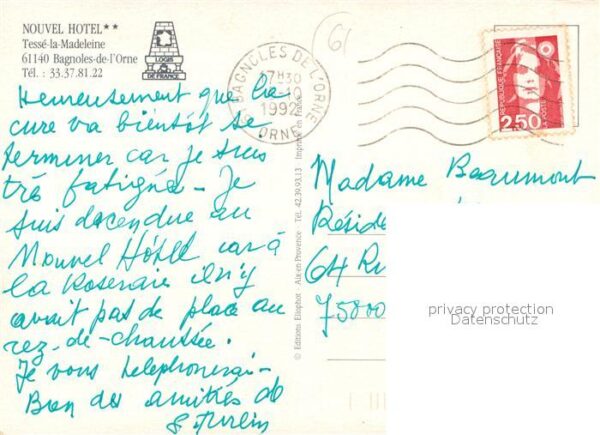 NOUVEL HOTEL**
Tessé-la-Madeleine
61140 Bagnoles-de-l'Orne
Tél. : 33.37.81.22
LOGIS
DE FRANCE
61
BAGNOLES DE L'ORNE
07H30
10
1992
ORNE
REPUBLIQUE FRANÇAISE
LA POSTE
2,50
Heureusement que la
cure va bientôt se
terminer car je suis
très fatiguée - Je
suis descendue au
Nouvel Hôtel car à
la Roseraie il n'y
avait pas de place au
rez-de-chaussée.
Je vous téléphonerai -
Bien des amitiés de
© Editions Eliophot - Aix-en-Provence Tél. 42.39.93.13 - Imprimé en France
Madame Beaumont
Réside
64 Ru
75800
privacy protection
Datenschutz